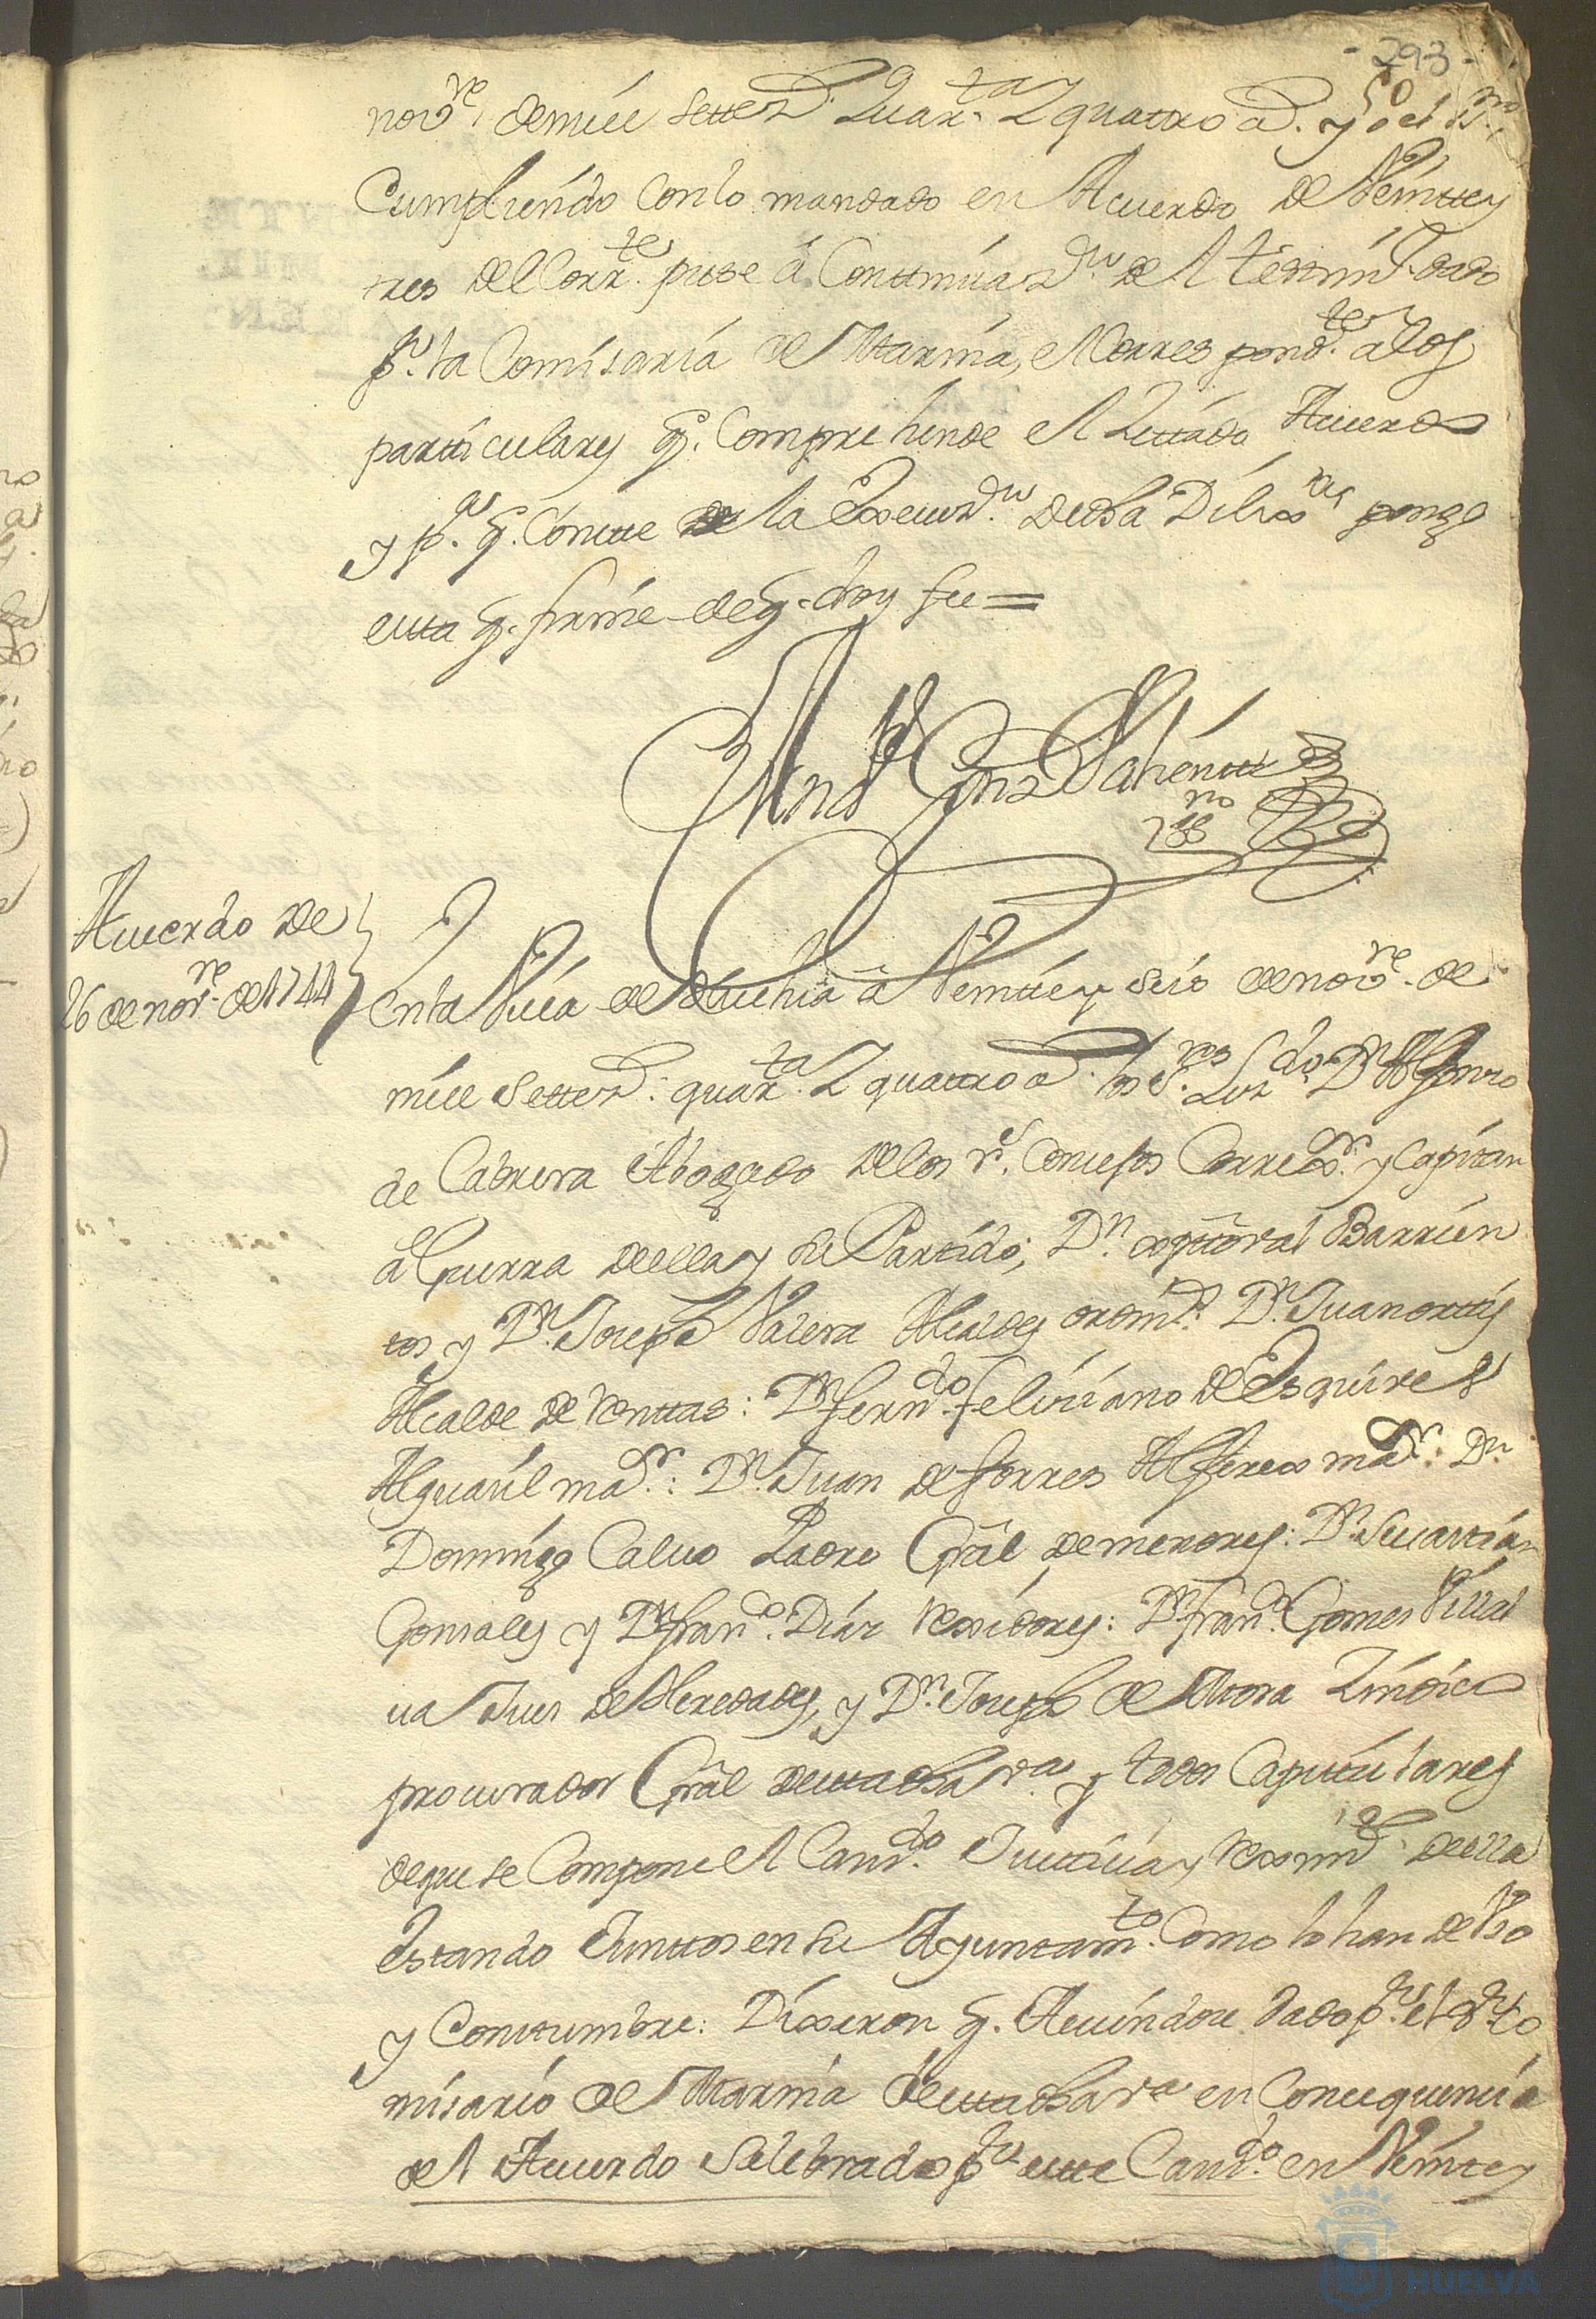 - 293 -
nov.re de mill settez.s Quar.ta Y quattro a.s yo el ss.no
Cumpliendo Con lo mandado en Acuerdo de Veintte y
tres del Corr.te puse â Continuaz.on de el testim.o dado
p.r la Comisaría de Marina, el Correspond.te a los
particulares q.e Comprehende el Zittado Acuerdo
y p.a q.e Conste de la Execuz.on de dha Dilix.a pongo
esta q.e firmé de q.e doy fee =
And.s Gonz Sahentte
ss.no
Acuerdo de
26 de nov.re de 1744
En la Villa de Huelva â Veintte y seis de nov.re de
mill settez.s quar.ta Y quattro a.s los S.res Liz.do D.n Alfonso
de Cabrera Abogado de los r.s Consejos Correx.or y Capitan
a Guerra de ella y su Partido, D.n Xptoval Barrien
tos y D.n Joseph Valera Alcaldes ordin.s D.n Juan ortis
Alcalde de Venttas: D.n fern.do feliciano de Esquivel
Alguasil ma.or: D.n Juan de torres Alferex ma.or: D.n
Domingo Calvo Padre Gräl de menores: D.n Sevastian
Gonsales y D.n fran.co Díaz Rexidores: D.n fran.co Gomes Villal
va Jues de Heredades, y D.n Joseph de Mora Zíndico
procurador Gräl de esta dha v.a y todos Capitulares
de que se Compone el Cav.do Justicia y Reximi.to de ella
Estando Junttos en su Ayuntam.to Como lo han de Vso
y Constumbre: Dixeron q.e Aviendose dado p.r el S.r Co
misario de Marina de esta dha v.a en Consequencia
de el Acuerdo Selebrado p.r este Cav.do en Veintte y
HUELVA